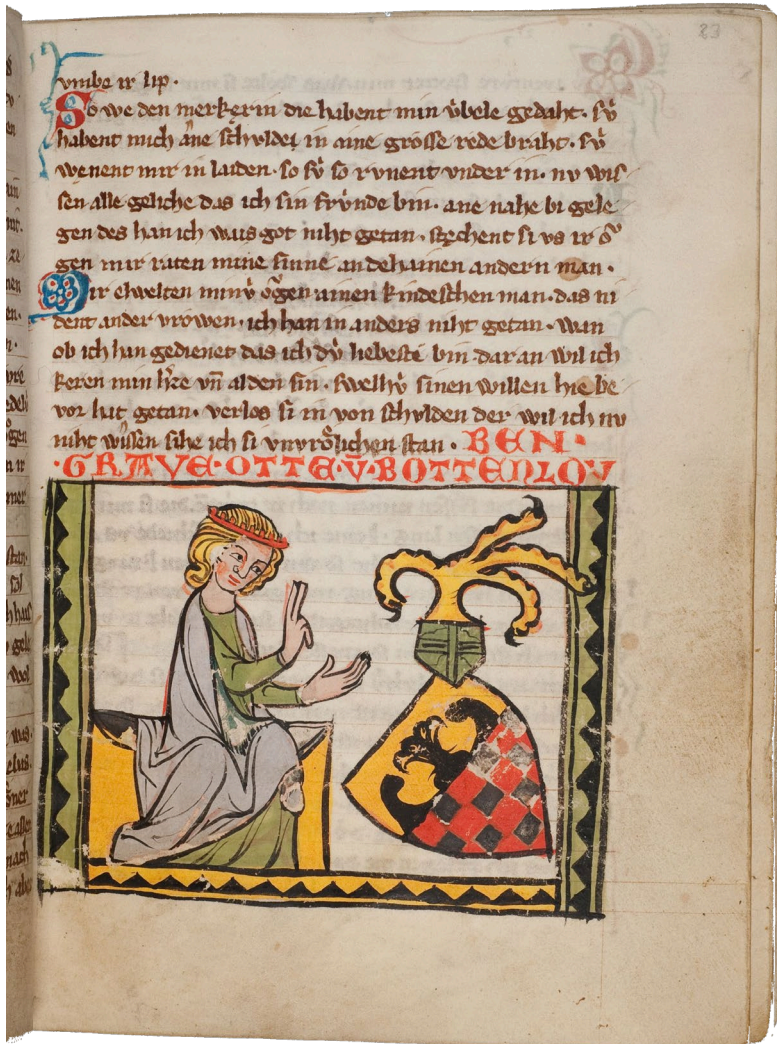 23
vmbe ir lip.
So we den merkerin die habent min v̂bele gedaht. sv̂
habent mich ane schvlde in aine grosse rede braht. sv̂
wenent mir in laiden. so sv̂ so rvnent vnder in. nv wis
sen alle geliche das ich sin frv̂nde bin. ane nahe bi gele
gen des han ich wais got niht getan. stechent si vs ir ŏ
gen mir raten mine sinne an dehainen andern man.
Mir erwelten minv̂ ŏgen ainen kindeschen man. das ni
dent ander vrowen. ich han in anders niht getan. wan
ob ich han gedienet das ich dv̂ liebeste bin. dar an wil ich
keren min h̾ze vn̄ al den sin. swelhv̂ sinen willen hie be
vor hat getan. verlos si in von schvlden der wil ich nv
niht wissen sihe ich si vnvrŏlichen stan. BEN.
.GRAVE.OTTE.V.BOTTENLOV